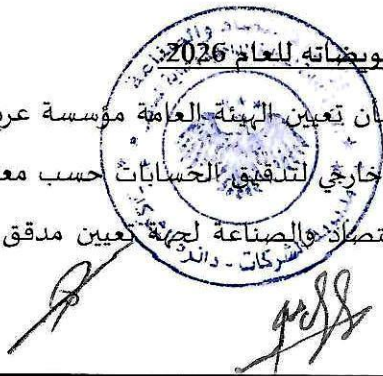 ويضاته للعام 2026
ان تعيين الهيئة العامة مؤسسة عر
خارجي لتدقيق الحسابات حسب مع
تصاد والصناعة لجهة تعيين مدقق
والصناعة
الشركات - دائرة